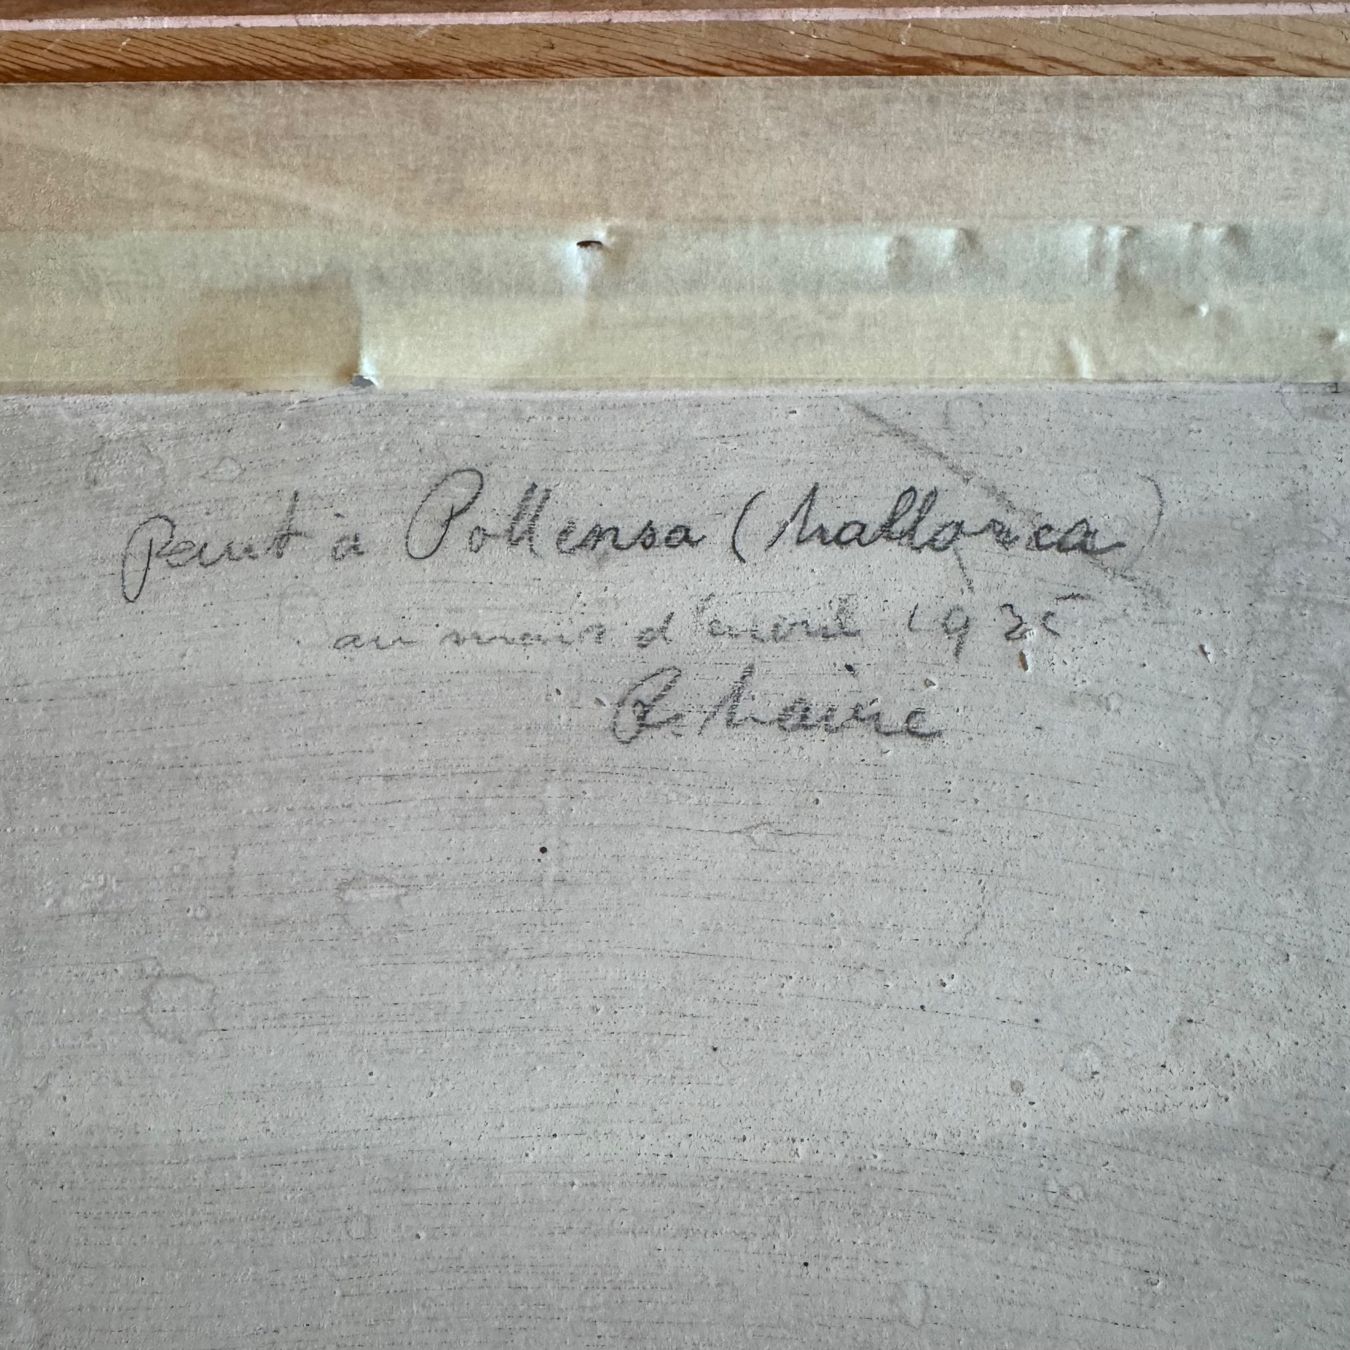 Peint à Pollensa (Mallorca)
au mois d'avril 1935
P. Maire